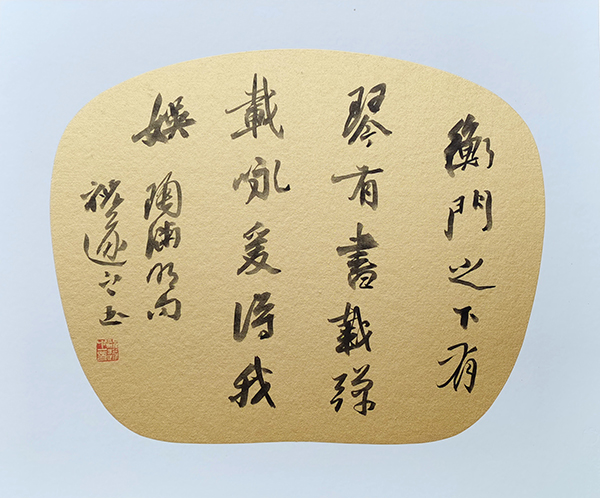 衡門之下有
琴有書載彈
載咏爰得我
娛 陶淵明句